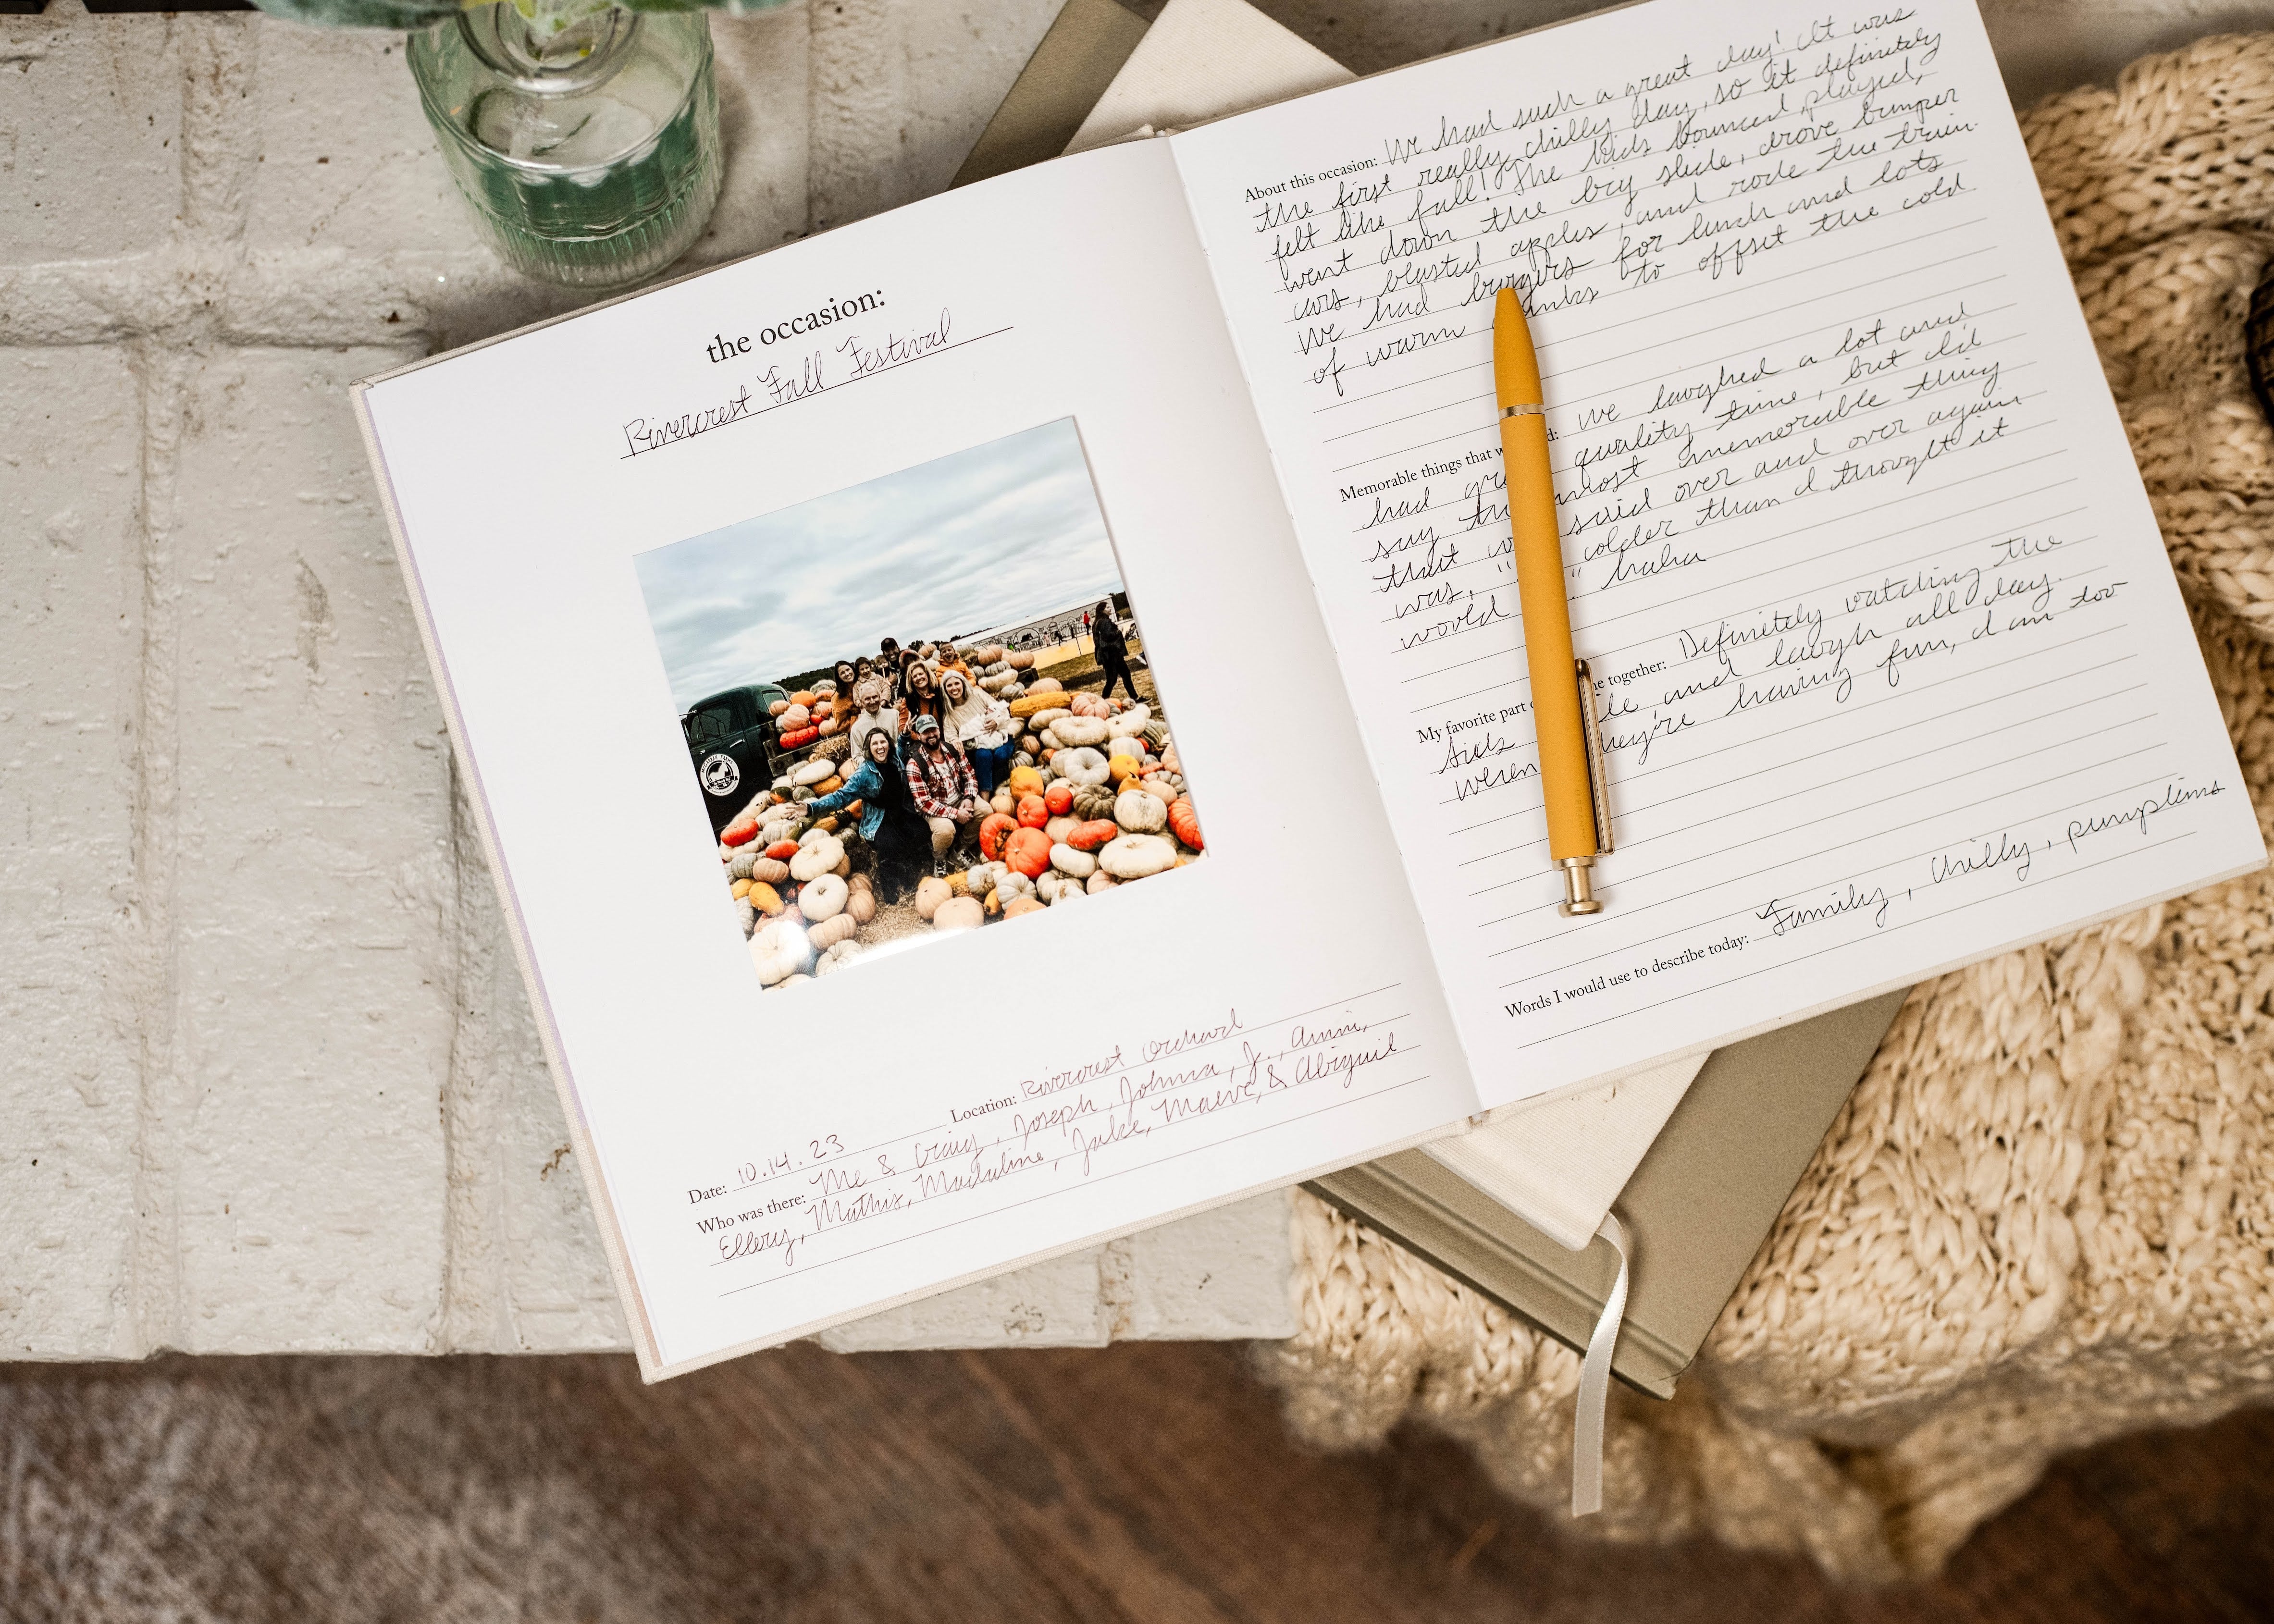 the occasion:
Rivercrest Fall Festival
Date: 10.14.23 Location: Rivercrest Orchard
Who was there: Me & Craig, Joseph, Johnna, Jr., Anni,
Ellery, Mathis, Madaline, Jake, Maeve, & Abigail
About this occasion: We had such a great day! It was
the first really chilly day, so it definitely
felt like fall! The kids bounced, played,
went down the big slide, drove bumper
cars, blasted apples, and rode the train.
We had burgers for lunch and lots
of warm to offset the cold
Memorable things that d: We laughed a lot and
had quality time, but I'd
say most memorable thing
that said over and over again
was, " colder than I thought it
would ." haha
My favorite part e together: Definitely watching the
kids and laugh all day.
When they're having fun, I am too
Words I would use to describe today: Family, chilly, pumpkins